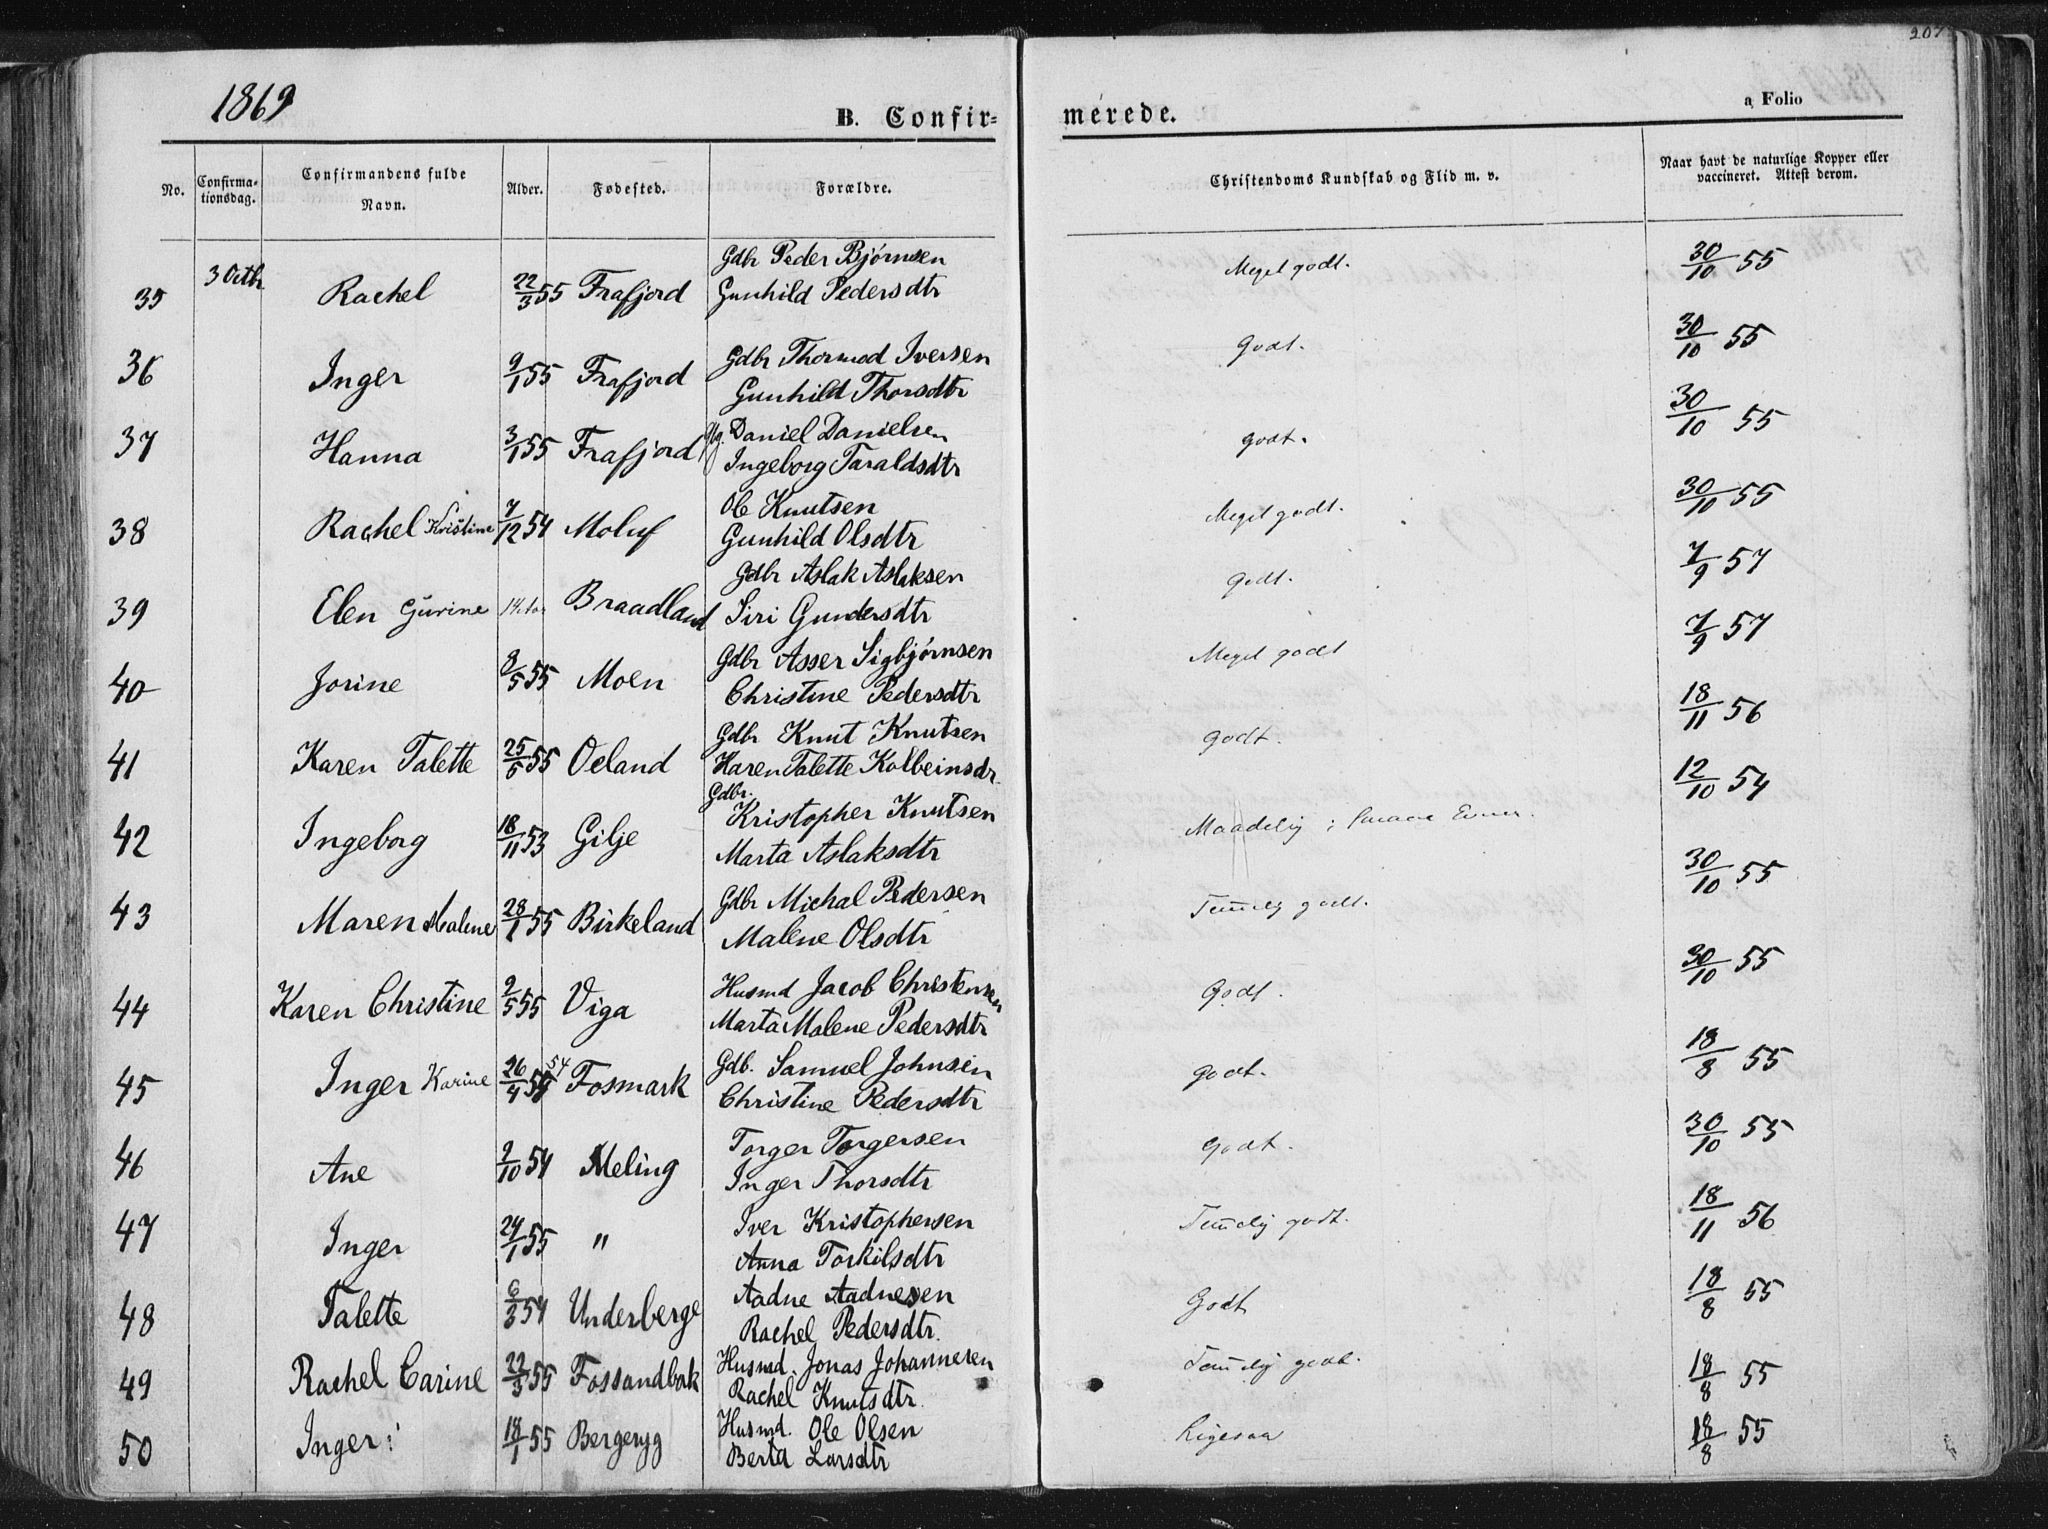 207
1869
B. Confir-
merede.
a Folio
No.
Confirma-
tionsdag.
Confirmandens fulde
Navn.
Alder.
Fødested.
Forældre.
Christendoms Kundskab og Flid m. v.
Naar havt de naturlige Kopper eller
vaccineret. Attest derom.
Gdbr Peder Bjørnsen
35 3 Octbr Rachel 22/3 55 Frafjord Gunhild Pedersdtr Meget godt. 30/10 55
Gdbr Thormod Iversen
36 Inger 9/1 55 Frafjord Gunhild Thorsdtr Godt. 30/10 55
Daniel Danielsen
37 Hanna 3/1 55 Frafjord Ingeborg Taraldsdtr godt. 30/10 55
Ole Knutsen
38 Rachel Kristine 7/12 54 Moluf Gunhild Olsdtr Meget godt. 30/10 55
Gdbr Aslak Aslaksen
39 Elen Gurine Braadland Siri Gundersdtr godt. 7/9 57
Gdbr Asser Sigbjørnsen
40 Jorine 8/5 55 Moen Christine Pedersdtr Meget godt 7/9 57
Gdbr Knut Knutsen
41 Karen Talette 25/5 55 Oeland Karen Talette Kolbeinsdr. godt. 18/11 56
Gdbr.
Kristopher Knutsen
42 Ingeborg 18/11 53 Gilje Marta Aslaksdtr Maadelig; smaae Evner. 12/10 54
Gdbr Michal Pedersen
43 Maren Malene 28/1 55 Birkeland Malene Olsdtr Temelig godt. 30/10 55
Husmd Jacob Christensen
44 Karen Christine 2/5 55 Viga Marta Malene Pedersdtr Godt. 30/10 55
Gdb. Samuel Johnsen
45 Inger Karine 26/4 54 Fosmark Christine Pedersdtr godt. 18/8 55
Torger Torgersen
46 Ane 2/10 54 Meling Inger Thorsdtr Godt. 30/10 55
Iver Kristophersen
47 Inger 24/1 55 " Anna Torkilsdtr Temelig godt. 18/11 56
Aadne Aadnesen
48 Talette 6/3 54 Underberge Rachel Pedersdtr. Godt 18/8 55
Husmd. Jonas Johannesen
49 Rachel Carine 22/3 55 Fossandbak Rachel Knutsdtr. Temelig godt. 18/8 55
Husmd. Ole Olsen
50 Inger 18/1 55 Bergeryg Berta Larsdtr Ligesaa 18/8 55